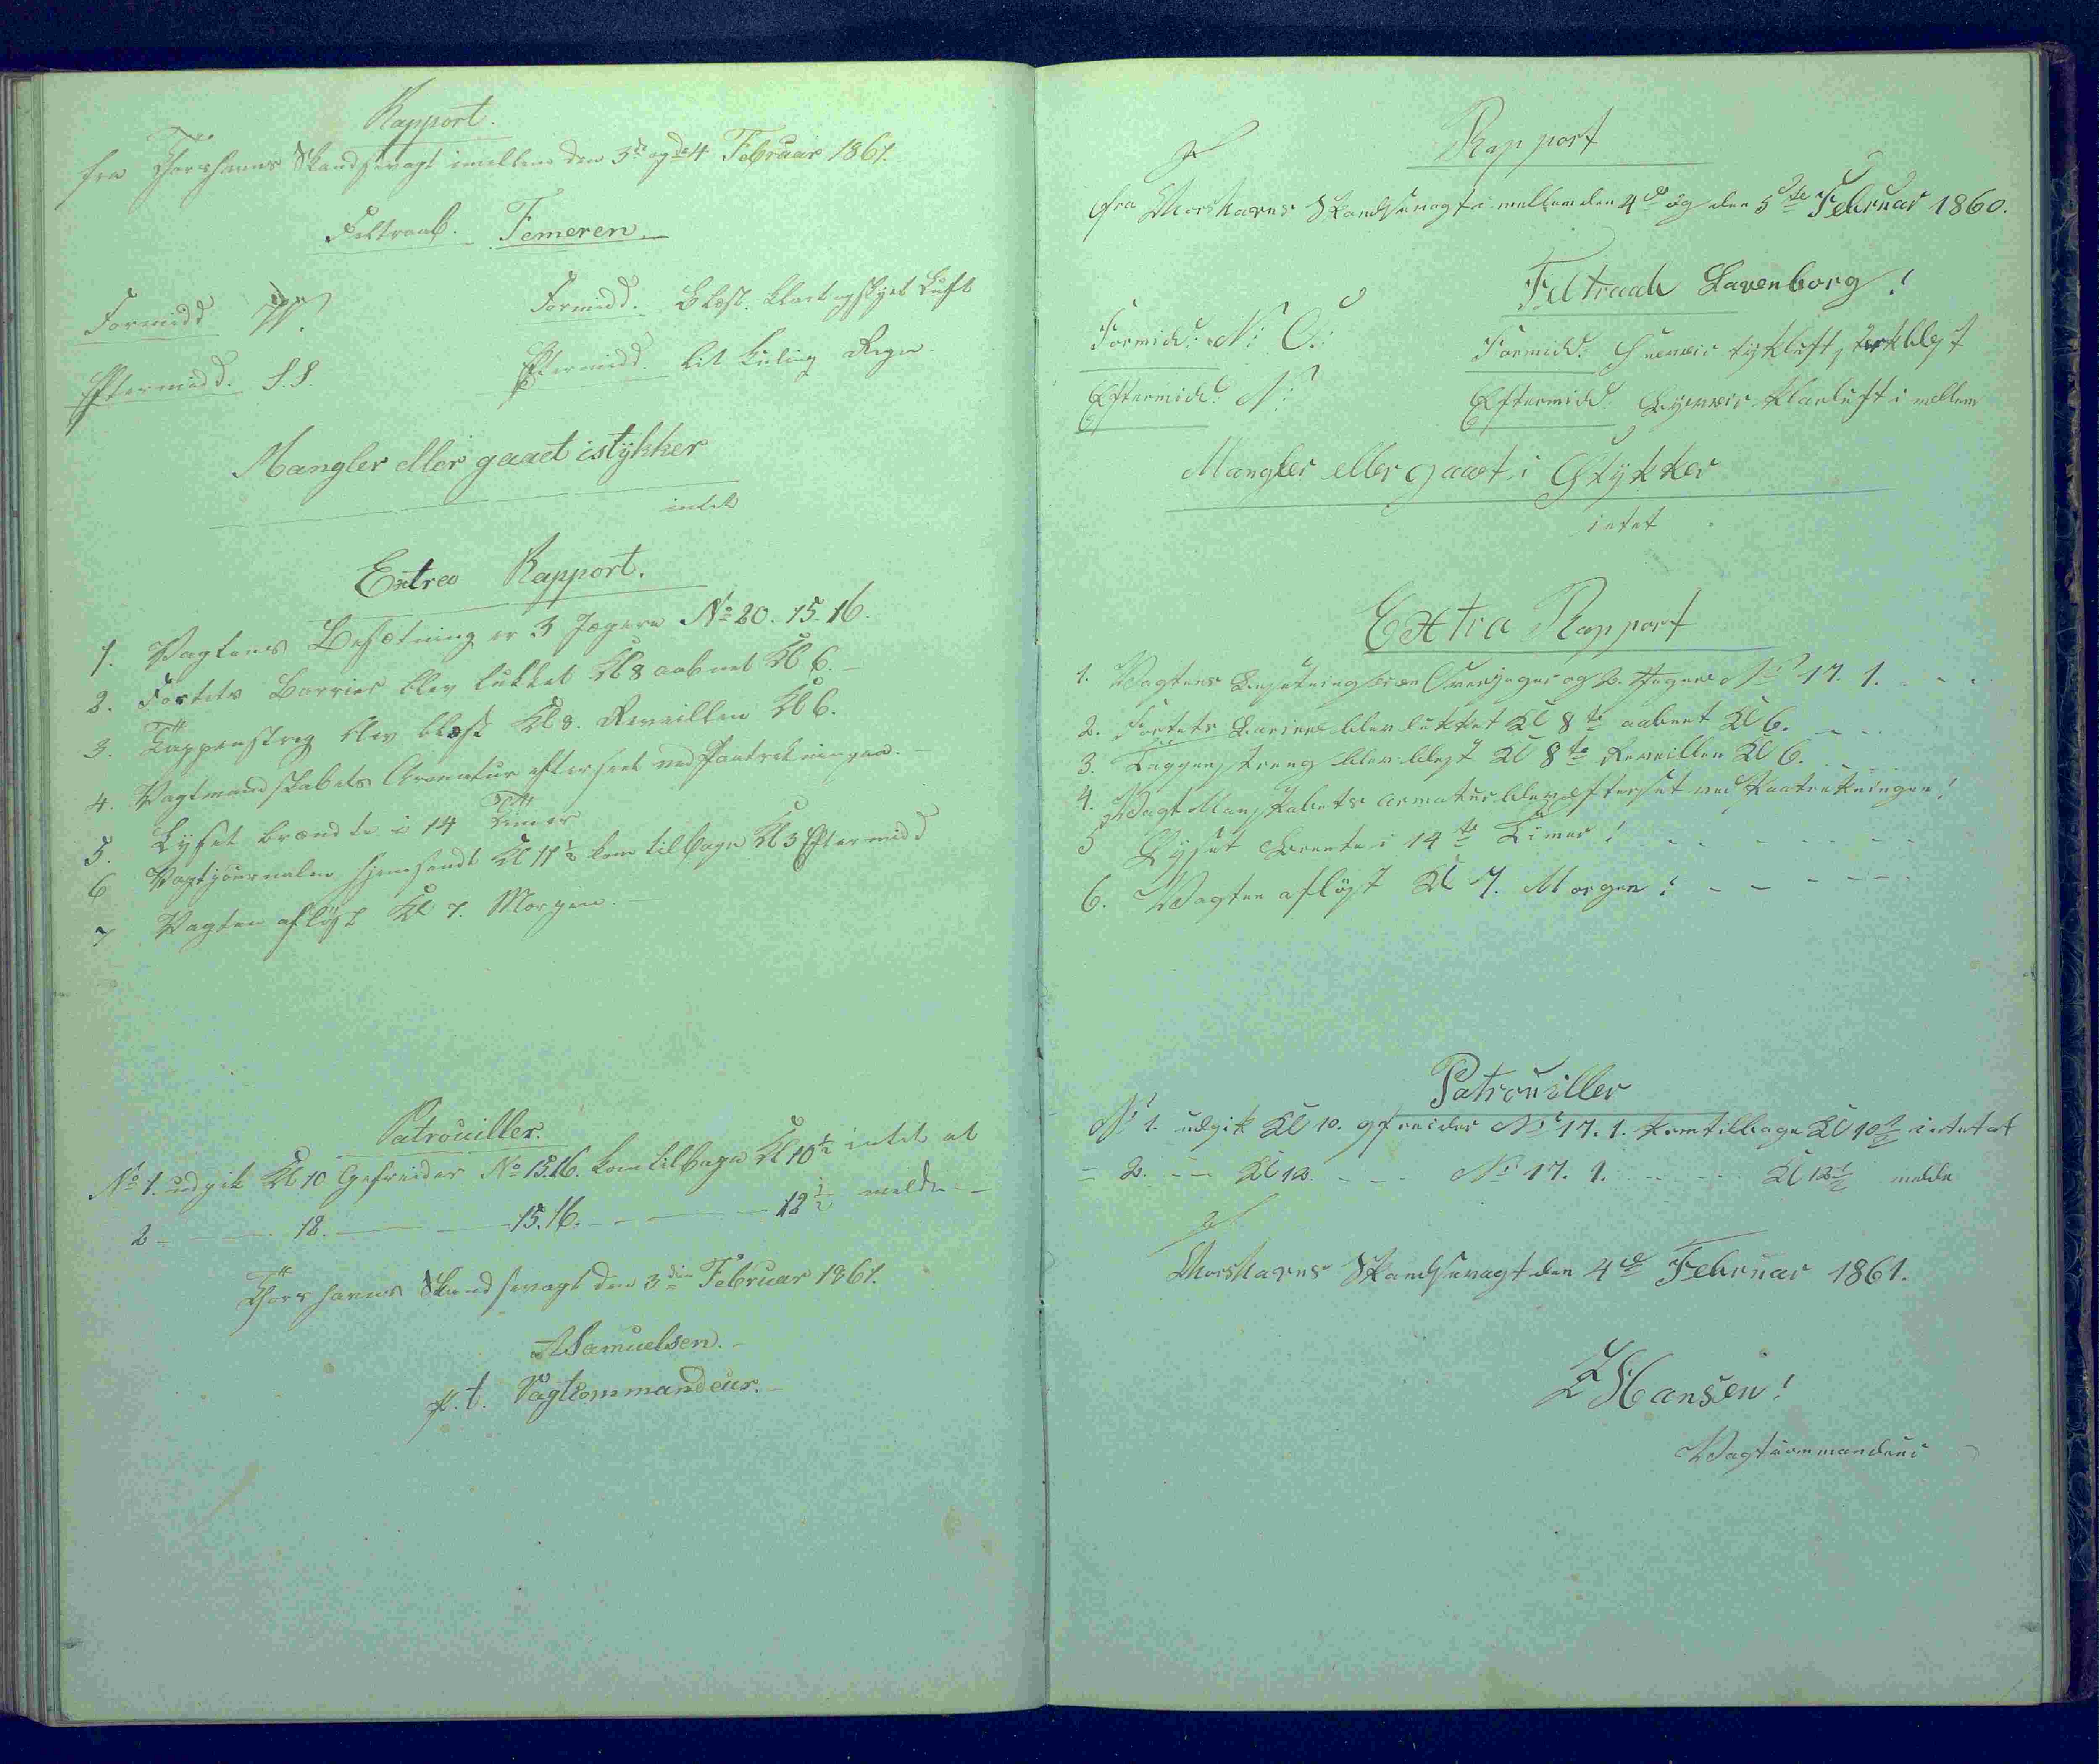 Rapport.
fra Thorshavns Skandsevagt imellem den 3de og de 4 Februar 1861.
Feltraab. Femeren
Formidd W. Formidd. Blæst. klart og skyet Luft
Eftermidd. S.S. Eftermidd. lit Kuling Regn.
Mangler eller gaaet istykker
intet
Extra Rapport.
1. Vagtens Besætning er 3 Jægere No 20. 15. 16.
2. Fortets Barrier blev lukket Kl 8 aabnet Kl 6.
3. Tappenstreg blev blæst Kl 8. Reveillen Kl 6.
4. Vagtmandskabets Armatur efterseet ved Paatrekningen.
5. Lyset brændte i 14 Timer
6 Vagtjournalen hjemsendt Kl 11½ kom tilbage Kl 3 Eftermidd
7 Vagten afløst Kl 7. Morgen.
Patrouiller.
No 1. udgik Kl 10 Gefreider No 15.16. kom tilbage Kl 10½ intet at
2 — 12. — 15.16. — 12½ melde
Thorshavns Skandsevagt den 3die Februar 1861.
Samuelsen.
p.t. Vagtcommandeur.
Rapport
fra Thorshavns Skandsevagt i mellem den 4de og den 5te Februar 1860.
Feltraab Lavenborg!
Formidd: N: O: Formidd: Sneeveir tykluft, blæst
Eftermidd: N: Eftermidd: Klarluft i mellem
Mangler eller gaaet i Stykker
intet
Extra Rapport
1. Vagtens Besetning er en Overjeger og 2. Jegere No 17. 1.
2. Fortets Bariere blev lukket Kl 8te aabnet Kl 6.
3. Tappenstreng blev blest Kl 8te Reveillen Kl 6.
4. Vagt Manskabets armatur blev efterset ved Paatrekningen!
5 Lyset Brente i 14te Timer!
6. Vagten afløst Kl 7. Morgen!
Patrouiller
No 1. udgik Kl 10. gfreider No 17. 1. kom tilbage Kl 10½ intet at
— 2. — Kl 12. — No 17. 1. — Kl 12½ melde
Thorshavns Skandsevagt den 4de Februar 1861.
Hansen!
Vagtcommandeur